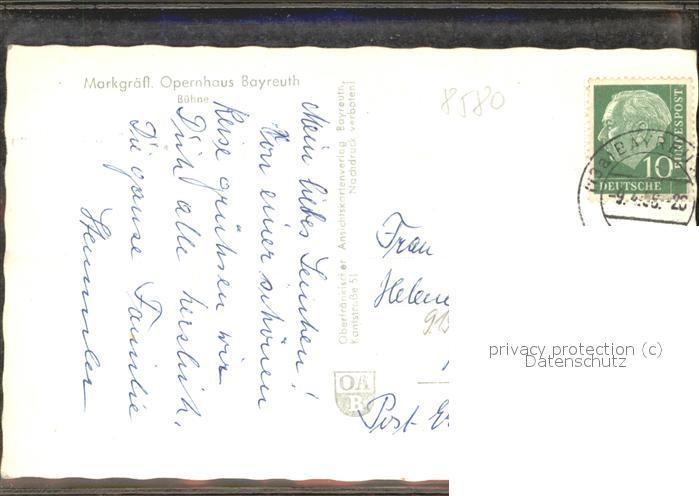 Markgräfl. Opernhaus Bayreuth
Bühne
8580
Mein liebes Lenchen!
Von einer schönen
Reise grüßen wir
Dich alle herzlich,
Die ganze Familie
Oberfränkischer Ansichtskartenverlag Bayreuth,
Kantstraße 51
Nachdruck verboten!
OAB
Frau
Helen
Post
10
DEUTSCHE
BUNDESPOST
(13a) BAYR
-9.4.56.-20
privacy protection (c)
Datenschutz